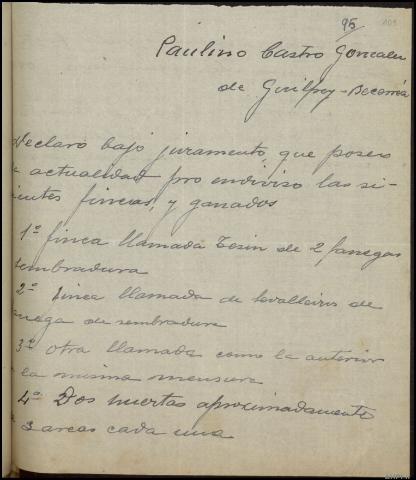 95 103
Paulino Castro Gonzalez
de Guilfrey-Becerreá
Declaro bajo juramento, que poseo
actualidad pro indiviso las si-
ientes fincas, y ganados
1ª finca llamada Tosin de 2 fanegas
sembradura
2ª finca llamada de Cavalleiros de
anega de sembradura
3ª otra llamada como la anterior
la misma mensura
4ª Dos huertas aproximadamente
3 areas cada una